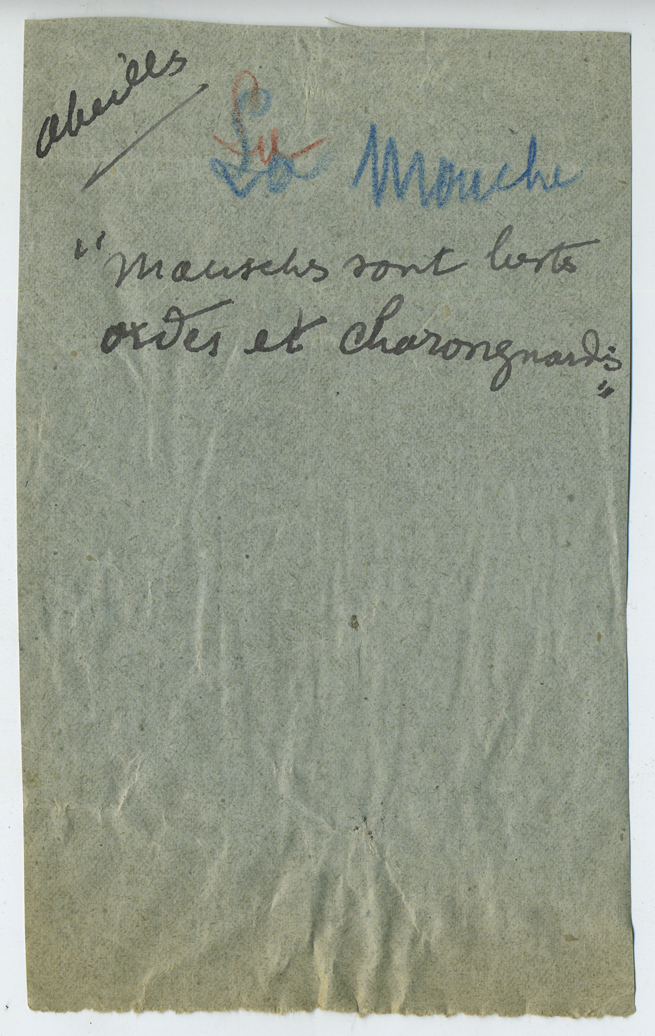 abeilles
La Mouche
"Mousches sont bestes
ordes et charongnardes
"